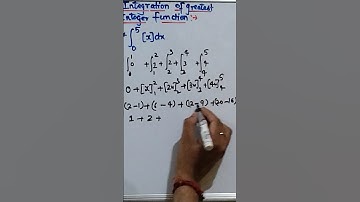 Integration of greatest
integer function:-
∫₀⁵ [x]dx
∫₀¹ 0 + ∫₁² 1 + ∫₂³ 2 + ∫₃⁴ 3 + ∫₄⁵ 4
0 + [x]₁² + [2x]₂³ + [3x]₃⁴ + [4x]₄⁵
(2-1) + (6-4) + (12-9) + (20-16)
1 + 2 +